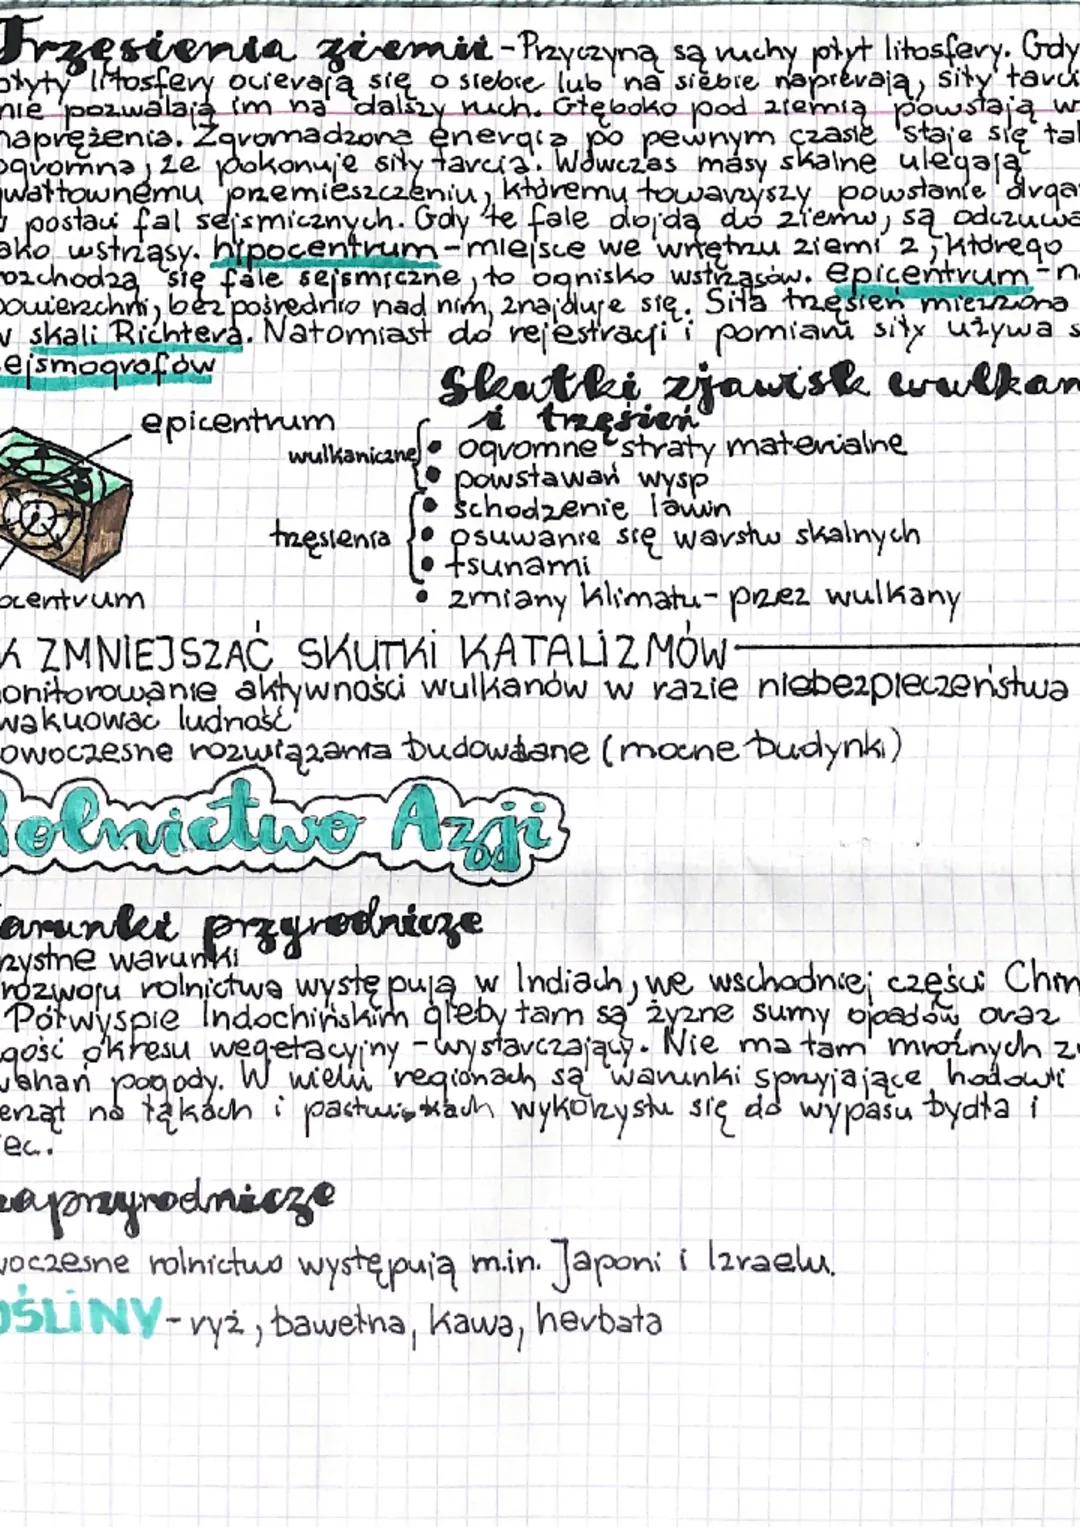 Trzęsienia ziemi - Przyczyną są ruchy płyt litosfery. Gdy
płyty litosfery ocierają się o siebie lub na siebie napierają, siły tarci
nie pozwalają im na dalszy ruch. Głęboko pod ziemią powstają w
naprężenia. Zgromadzona energia po pewnym czasie staje się tak
ogromna, że pokonuje siły tarcia. Wówczas masy skalne ulegają
gwałtownemu przemieszczeniu, któremu towarzyszy powstanie drgań
w postaci fal sejsmicznych. Gdy te fale dojdą do ziemi, są odczuwa
ako wstrząsy. hipocentrum - miejsce we wnętrzu ziemi z, którego
rozchodzą się fale sejsmiczne, to ognisko wstrząsów. epicentrum - n
powierzchni, bezpośrednio nad nim, znajduje się. Siła trzęsień mierzona
w skali Richtera. Natomiast do rejestracji i pomiaru siły używa s
ejsmografów
Skutki zjawisk wulkan
i trzęsień
epicentrum
wulkaniczne
• ogromne straty materialne
• powstawań wysp
• schodzenie lawin
trzęsienia
• osuwanie się warstw skalnych
• tsunami
ocentrum
• zmiany klimatu - przez wulkany
K ZMNIEJSZAĆ SKUTKI KATALIZMÓW
onitorowanie aktywności wulkanów w razie niebezpieczeństwa
wakuować ludność
owoczesne rozwiązania budowlane (mocne budynki)
Rolnictwo Azji
arunki przyrodnicze
rzystne warunki
rozwoju rolnictwa występują w Indiach, we wschodniej części Chin
Półwyspie Indochińskim gleby tam są żyzne sumy opadów oraz
gość okresu wegetacyjny - wystarczający. Nie ma tam mroźnych z
wahań pogody. W wielu regionach są warunki sprzyjające hodowli
erząt na łąkach i pastwiskach wykorzystu się do wypasu bydła i
ec.
zaprzyrodnicze
woczesne rolnictwo występują m.in. Japoni i Izraelu.
OŚLINY - ryż, bawełna, kawa, herbata